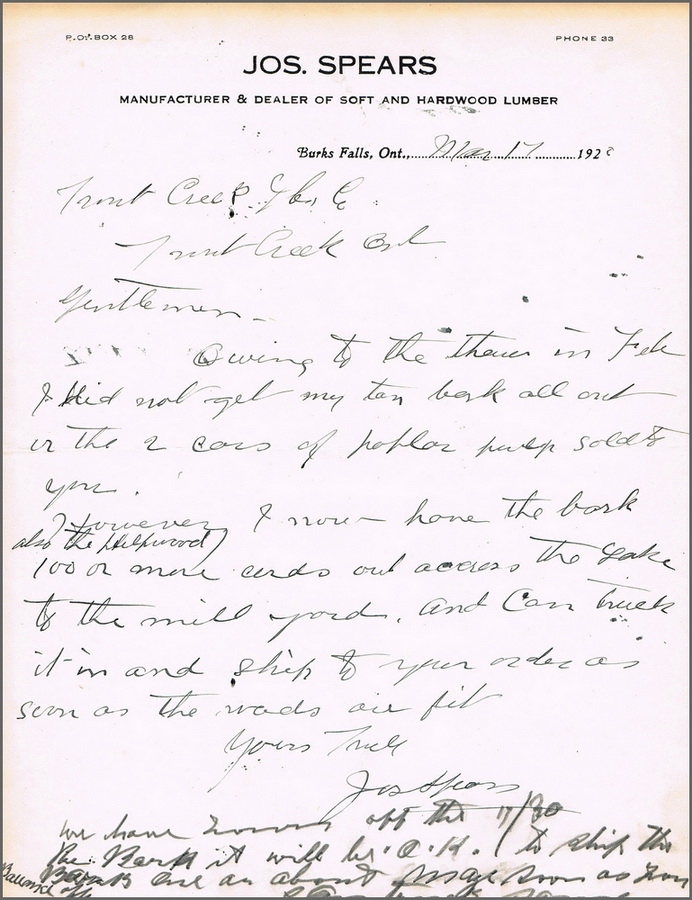 P.O. BOX 28
PHONE 33
JOS. SPEARS
MANUFACTURER & DEALER OF SOFT AND HARDWOOD LUMBER
Burks Falls, Ont., Mar 17 192
Trout Creek Lbr Co
Trout Creek Ont
Gentlemen -
Owing to the thaw in Feb
I did not get my tan bark all out
or the 2 cars of poplar pulp sold to
you.
However I now have the bark
also the pulpwood
100 or more cords out across the Lake
to the mill yard. and Can truck
it in and ship to your order as
soon as the roads are fit
Yours Truly
Jos Spears
we have off the 17/30
the Bark it will be O.K. to ship the
Bark about May soon as
Balance